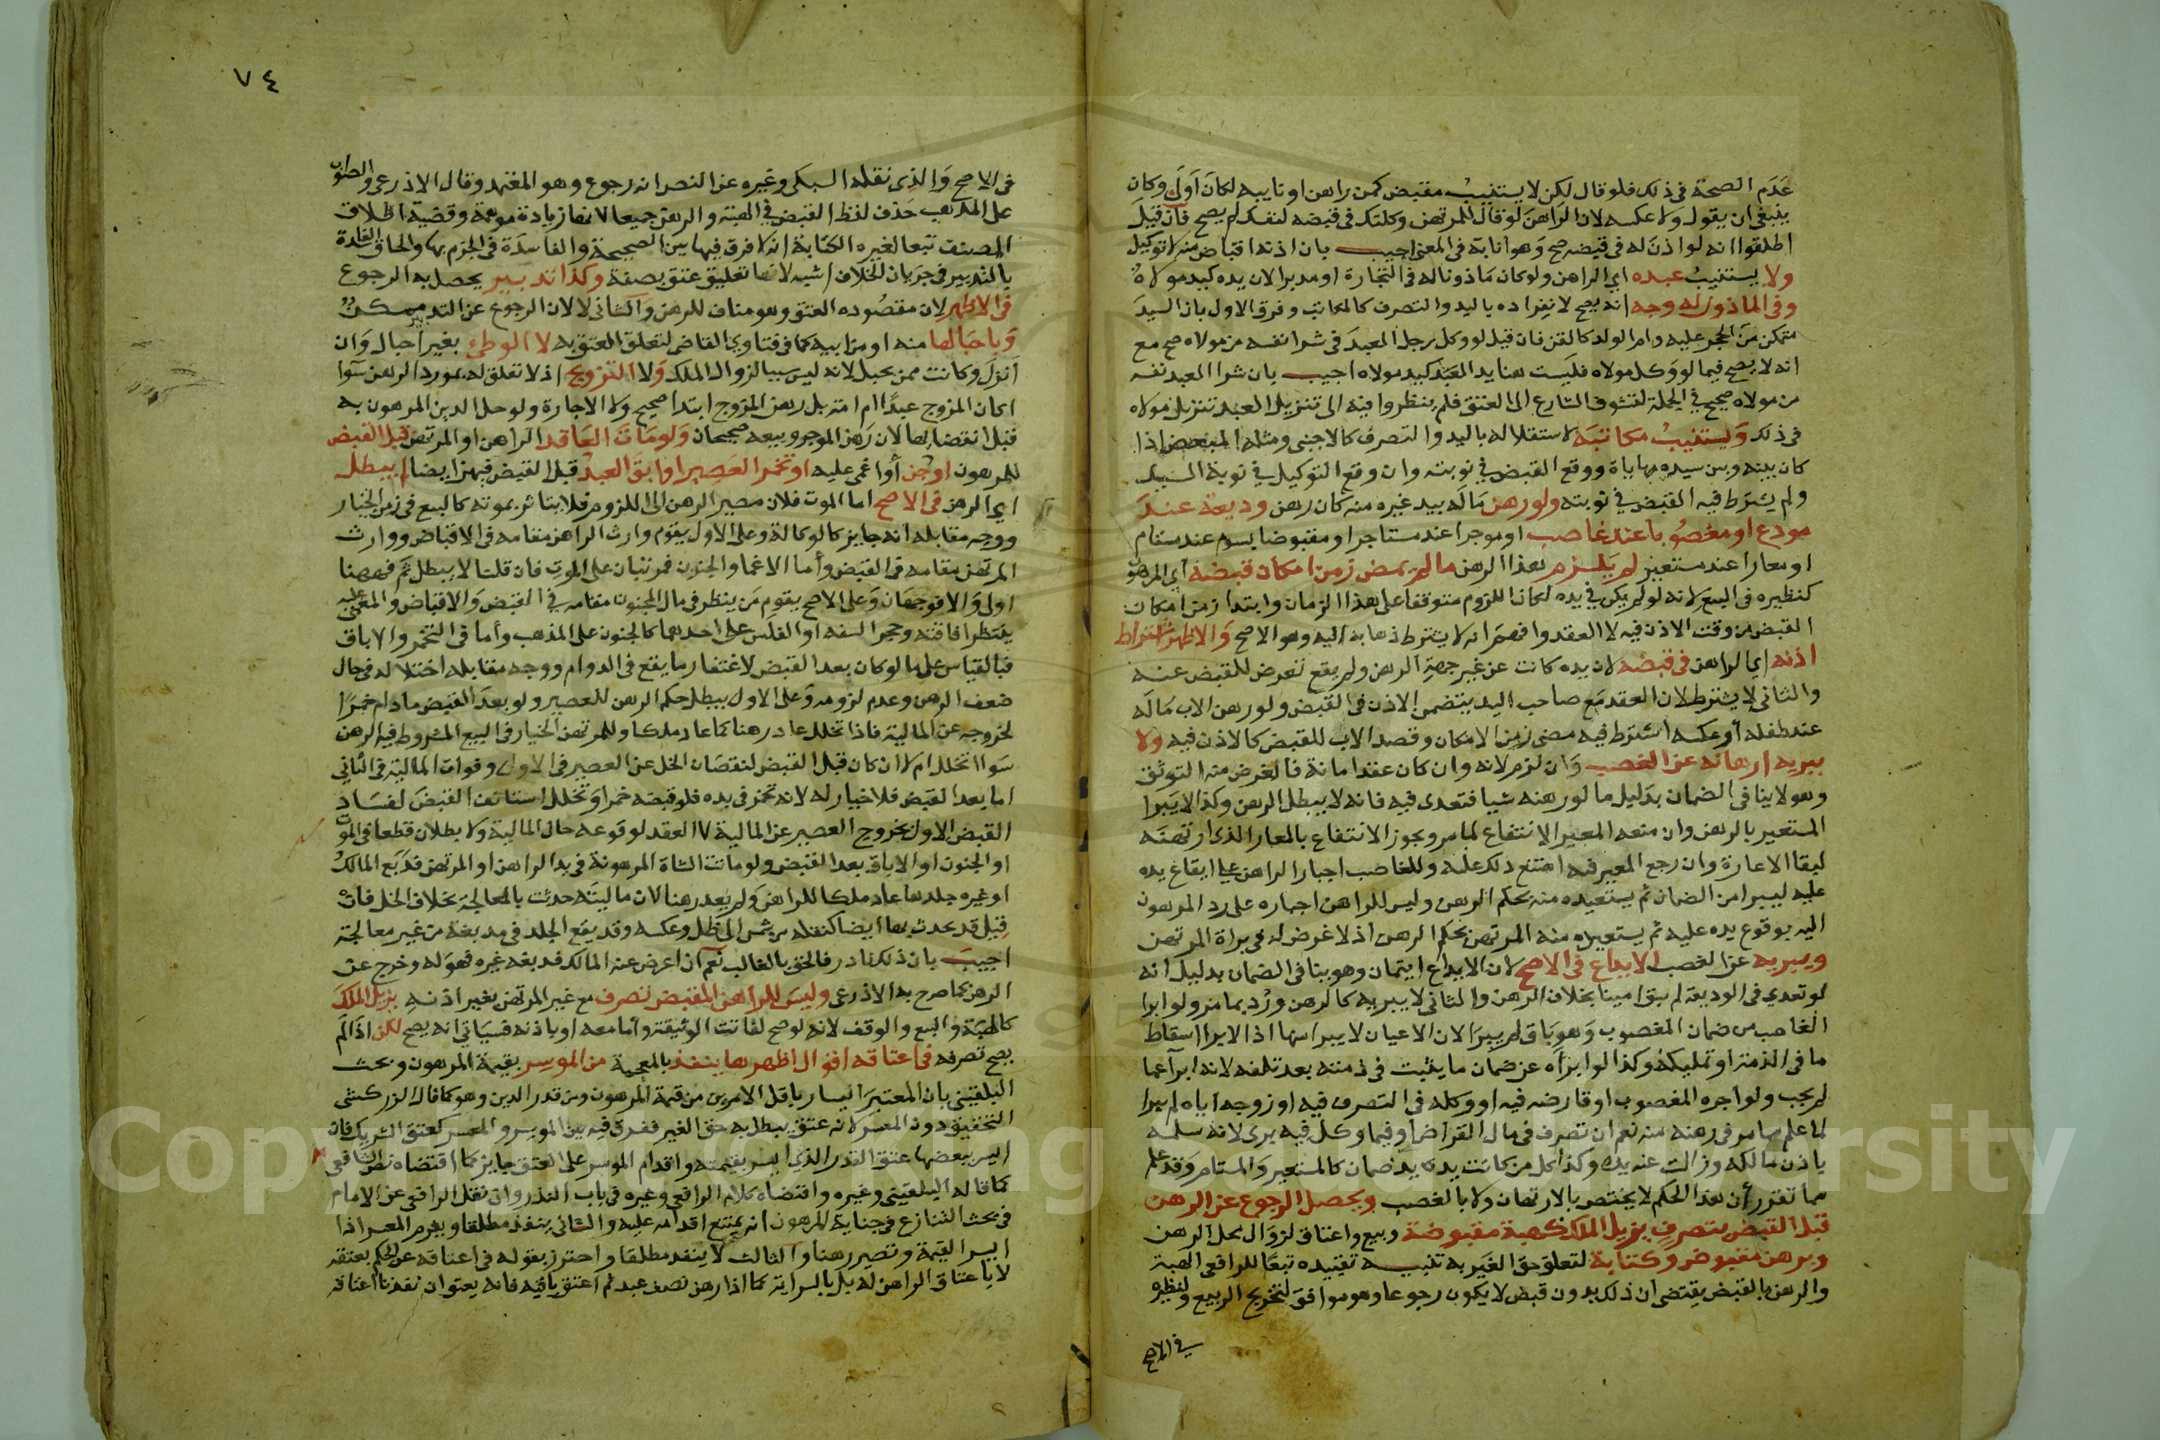 عدم الصحة في ذلك فلو قال لكن لا يستنيب مقبض كمن راهن او نايبه لكان اولى وكان
ينبغي ان يقول ولا عكسه لان الراهن لو قال للمرتهن وكلتك في قبضه لنفسك لم يصح فان قيل
اطلقوا انه لو اذن له في قبضه صح وهو انابة في المعنى اجيب بان اذنه اقباض منه لا توكيل
ولا يستنيب عبده اي الراهن ولو كان ماذونا له في التجارة او مدبرا لان يده كيد مولاه
وفي الماذون له وجه انه يصح لانفراده باليد والتصرف كالمكاتب وفرق الاول بان السيد
متمكن من الحجر عليه وام الولد كالقن فان قيل لو وكل رجل العبد في شرا نفسه من مولاه صح مع
انه لا يصح فيما لو وكل مولاه فليست هنا يد العبد كيد مولاه اجيب بان شرا العبد نفسه
من مولاه صحيح في الجملة لتشوف الشارع الى العتق فلم ينظروا فيه الى تنزيل العبد تنزيل مولاه
في ذلك ويستنيب مكاتبه لاستقلاله باليد والتصرف كالاجنبي ومثله المبعض اذا
كان بينه وبين سيده مهاياة ووقع القبض في نوبته وان وقع التوكيل في نوبة السيد
ولم يشرط فيه القبض في نوبته ولو رهن ماله بيد غيره منه كان رهن وديعة عند
مودع او مغصوبا عند غاصب او موجرا عند مستاجر او مقبوضا بسوم عند مستام
او معارا عند مستعير لم يلزم هذا الرهن ما لم يمض زمن امكان قبضه اي المرهون
كنظيره في البيع لانه لو لم يكن في يده لكان اللزوم متوقفا على هذا الزمان وابتدا زمن امكان
القبض من وقت الاذن فيه لا العقد وافهم انه لا يشترط ذهابه اليه وهو الاصح والاظهر اشتراط
اذنه اي الراهن في قبضه لان يده كانت عن غير جهة الرهن ولم يقع تعرض للقبض عنه
والثاني لا يشترط لان العقد مع صاحب اليد يتضمن الاذن في القبض ولو رهن الاب ماله
عند طفله او عكسه اشترط فيه مضي زمن الامكان وقصد الاب للقبض كالاذن فيه ولا
يبريه ارهانه عن الغصب وان لزم لانه وان كان عقد امانة فالغرض منه التوثق
وهو لا ينافي الضمان بدليل ما لو رهنه شيا فتعدى فيه فانه لا يبطل الرهن وكذا لا يبرا
المستعير بالرهن وان منعه المعير الانتفاع لما مر ويجوز الانتفاع بالمعار الذي ارتهنه
لبقا الاعارة وان رجع المعير فيه امتنع ذلك عليه وللغاصب اجبار الراهن على ايقاع يده
عليه ليبرا من الضمان ثم يستعيده منه بحكم الرهن وليس للراهن اجباره على رد المرهون
اليه بوقوع يده عليه ثم يستعيره منه المرتهن بحكم الرهن اذ لا غرض له في براة المرتهن
ويبريه عن الغصب الايداع في الاصح لان الايداع ايتمان وهو ينافي الضمان بدليل انه
لو تعدى في الوديعة لم يبق امينا بخلاف الرهن والثاني لا يبريه كالرهن ورد بما مر ولو ابرا
الغاصب من ضمان المغصوب وهو باق لم يبرا لان الاعيان لا يبرا منها اذ الابرا اسقاط
ما في الذمة او تمليكه وكذا لو ابراه عن ضمان ما يثبت في ذمته بعد تلفه لانه ابرا عما
لم يجب ولو اجره المغصوب او قارضه فيه او وكله في التصرف فيه او زوجه اياه لم يبرا
لما علم مما مر في رهنه منه نعم ان تصرف في مال القراض او فيما وكل فيه بري لانه سلمه
باذن مالكه وزالت عنه يده وكذا كل من كانت يده يد ضمان كالمستعير والمستام وقد علم
مما تقرر ان هذا الحكم لا يختص بالارتهان ولا بالغصب ويحصل الرجوع عن الرهن
قبل القبض بتصرف يزيل الملك كهبة مقبوضة وبيع واعتاق لزوال محل الرهن
وبرهن مقبوض وكتابة لتعلق حق الغير به تنبيه تقييده تبعا للرافعي الهبة
والرهن بالقبض يقتضي ان ذلك بدون قبض لا يكون رجوعا وهو موافق لتخريج الربيع ولنظره
في الاصح
٧٤
في الاصح والذي نقله السبكي وغيره عن النص انه رجوع وهو المعتمد وقال الاذرعي والصواب
على المذهب حذف لفظ القبض في الهبة والرهن جميعا لانها زيادة موهمة وقضية اطلاق
المصنف تبعا لغيره الكتابة انه لا فرق فيها بين الصحيحة والفاسدة في الجزم بها والحاق الفاسدة
بالتدبير في جريان الخلاف اشبه لانها تعليق عتق بصفة وكذا تدبير يحصل به الرجوع
في الاظهر لان مقصوده العتق وهو مناف للرهن والثاني لا لان الرجوع عن التدبير ممكن
وباحبالها منه او من ابيه كما في فتاوي القاضي لتعلق العتق به لا الوطي بغير احبال وان
انزل وكانت ممن يحبل لانه ليس سببا لزوال الملك ولا التزويج اذ لا تعلق له بمورد الرهن سوا
اكان المزوج عبدا ام امة بل رهن المزوج ابتدا صحيح ولا الاجارة ولو حل الدين المرهون به
قبل انقضايها لان رهن الموجر وبيعه صحيحان ولو مات العاقد الراهن او المرتهن قبل القبض
للمرهون او جن او اغمي عليه او تخمر العصير او ابق العبد قبل القبض فيهن ايضا لم يبطل
اي الرهن في الاصح اما الموت فلان مصير الرهن الى اللزوم فلا يتاثر بموته كالبيع في زمن الخيار
ووجه مقابله انه جايز كالوكالة وعلى الاول يقوم وارث الراهن مقامه في الاقباض ووارث
المرتهن مقامه في القبض واما الاغما والجنون فمرتبان على الموت فان قلنا لا يبطل ثم فههنا
اولى والا فوجهان وعلى الاصح يقوم من ينظر في مال المجنون مقامه في القبض والاقباض والمغمى عليه
ينتظر افاقته وحجر السفه او الفلس على احدهما كالجنون على المذهب واما في التخمر والاباق
فبالقياس على ما لو كان بعد القبض لاغتفار ما يقع في الدوام ووجه مقابله اختلاله في حال
ضعف الرهن وعدم لزومه وعلى الاول يبطل حكم الرهن للعصير ولو بعد القبض ما دام خمرا
لخروجه عن المالية فاذا تخلل عاد رهنا كما عاد ملكا وللمرتهن الخيار في البيع المشروط فيه الرهن
سوا اتخلل ام لا ان كان قبل القبض لنقصان الخل عن العصير في الاول وفوات المالية في الثاني
اما بعد القبض فلا خيار له لانه تخمر في يده فلو قبضه خمرا وتخلل استانف القبض لفساد
القبض الاول بخروج العصير عن المالية لا العقد لوقوعه حال المالية ولا بطلان قطعا في الموت
او الجنون او الاباق بعد القبض ولو ماتت الشاة المرهونة في يد الراهن او المرتهن فدبغ المالك
او غيره جلدها عاد ملكا للراهن ولم يعد رهنا لان ماليته حدثت بالمعالجة بخلاف الخل فان
قيل قد يحدث بها ايضا كنقله من شمس الى ظل وعكسه وقد يقع الجلد في مدبغة من غير معالجة
اجيب بان ذلك نادر فالحق بالغالب نعم ان اعرض عنه المالك فدبغه غيره فهو له وخرج عن
الرهن كما صرح به الاذرعي وليس للراهن المقبض تصرف مع غير المرتهن بغير اذنه يزيل الملك
كالهبة والبيع والوقف لانه لو صح لفاتت الوثيقة واما معه او باذنه فسياتي انه يصح لكن اذا لم
يصح تصرفه في اعتاقه اقوال اظهرها ينفذ بالمعجمة من الموسر بقيمة المرهون وبحث
البلقيني بان المعتبر اليسار باقل الامرين من قيمة المرهون ومن قدر الدين وهو كما قال الزركشي
التحقيق دون المعسر لانه عتق يبطل به حق الغير ففرق فيه بين الموسر والمعسر كعتق الشريك فان
ايسر ببعضها عتق القدر الذي ايسر بقيمته واقدام الموسر على العتق جايز كما اقتضاه نص الشافعي
كما قاله البلقيني وغيره واقتضاه كلام الرافعي وغيره في باب النذر وان نقل الرافعي عن الامام
في بحث التنازع في جناية المرهون انه يمتنع اقدامه عليه والثاني ينفذ مطلقا ويغرم المعسر اذا
ايسر القيمة وتصير رهنا والثالث لا ينفذ مطلقا واحترز بقوله في اعتاقه عن الحكم بعتقه
لا باعتاق الراهن له بل بالسراية كما اذا رهن نصف عبد ثم اعتق باقيه فانه يعتق ان نفذنا اعتاقه